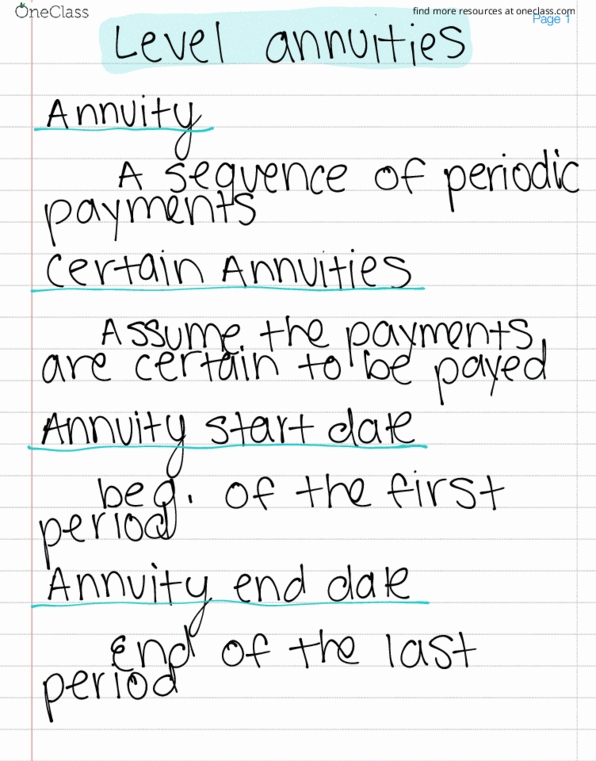 OneClass
find more resources at oneclass.com
Page 1
Level annuities
Annuity
A sequence of periodic
payments
Certain Annuities
Assume the payments
are certain to be payed
Annuity start date
beg. of the first
period
Annuity end date
End of the last
period